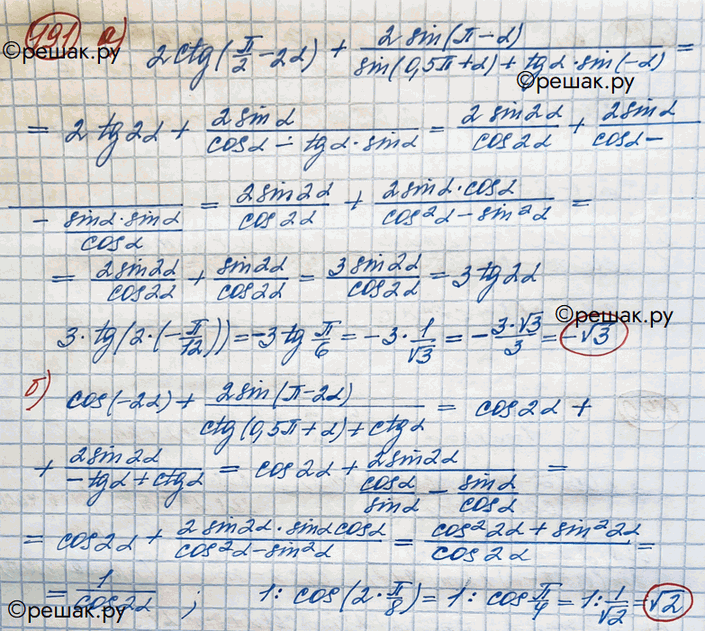 191 а)
©решак.ру
2ctg(π/2 - 2α) + 2sin(π-α)/(sin(0,5π+α) + tgα·sin(-α)) =
©решак.ру
= 2tg2α + 2sinα/(cosα - tgα·sinα) = 2sin2α/cos2α + 2sinα/(cosα -
- sinα·sinα/cosα) = 2sin2α/cos2α + 2sinα·cosα/(cos²α - sin²α) =
= 2sin2α/cos2α + sin2α/cos2α = 3sin2α/cos2α = 3tg2α
©решак.ру
3·tg(2·(-π/12)) = -3tg π/6 = -3·1/√3 = -3·√3/3 = -√3
б) cos(-2α) + 2sin(π-2α)/(ctg(0,5π+α) + ctgα) = cos2α +
+ 2sin2α/(-tgα + ctgα) = cos2α + 2sin2α/(cosα/sinα - sinα/cosα) =
= cos2α + 2sin2α·sinαcosα/(cos²α - sin²α) = (cos²2α + sin²2α)/cos2α =
= 1/cos2α ; 1 : cos(2·π/8) = 1 : cos π/4 = 1 : 1/√2 = √2
©решак.ру